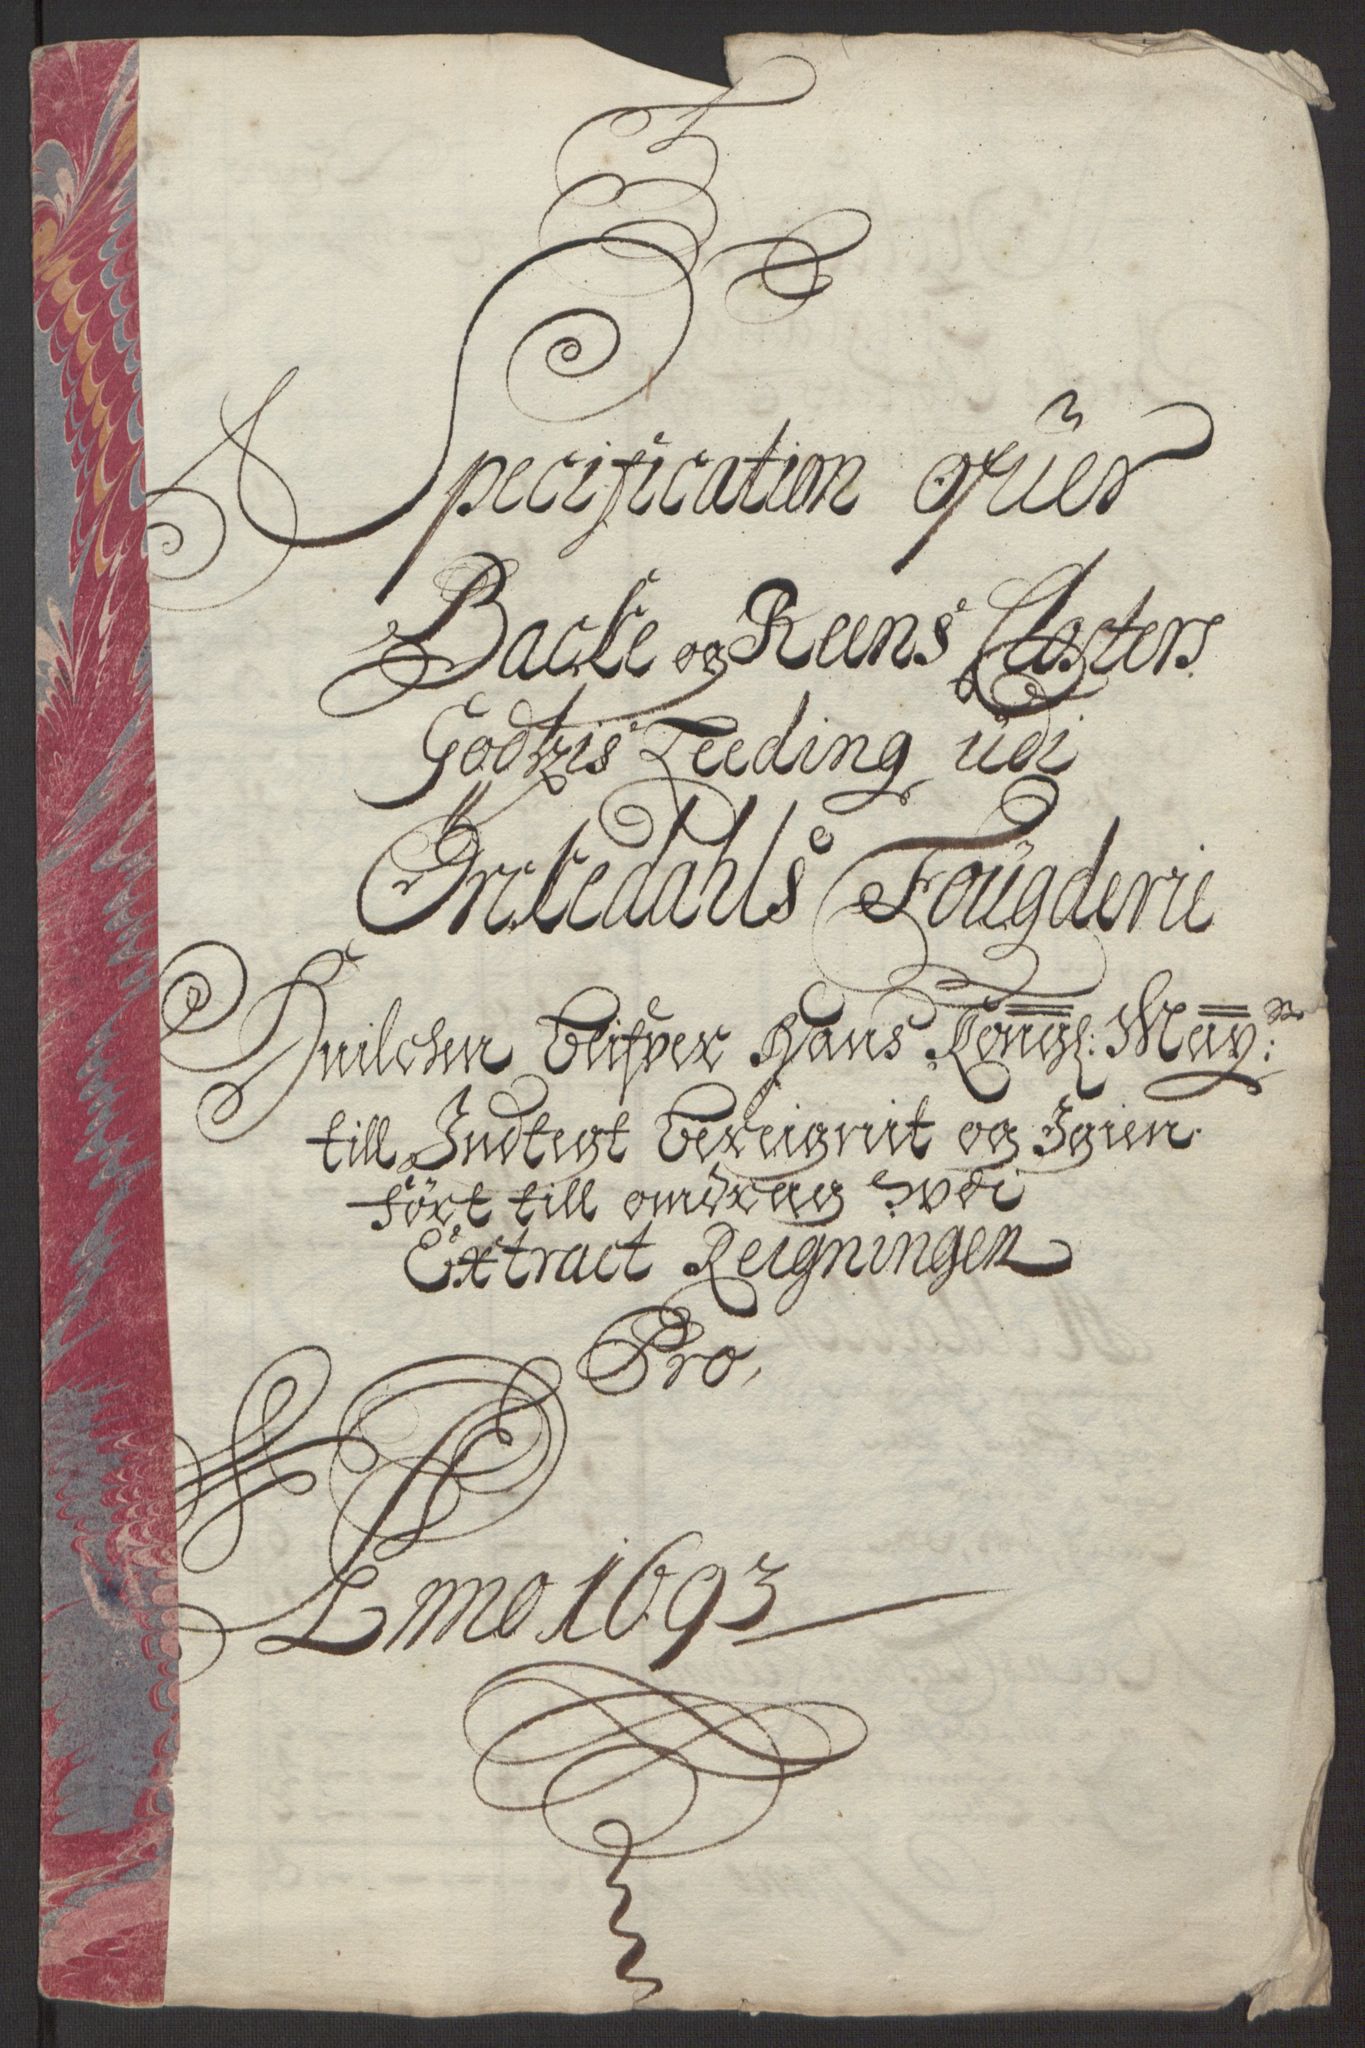 Specification ofuer
Backe og Reens Closters
Godtzis Leeding udi
Orckedahls Fougderie
Huilchen blifver Hans Kongl: May:
till Indtegt bereignit og Igien
ført till omdrag udi
Extract Reigningen
Pro,
Anno 1693